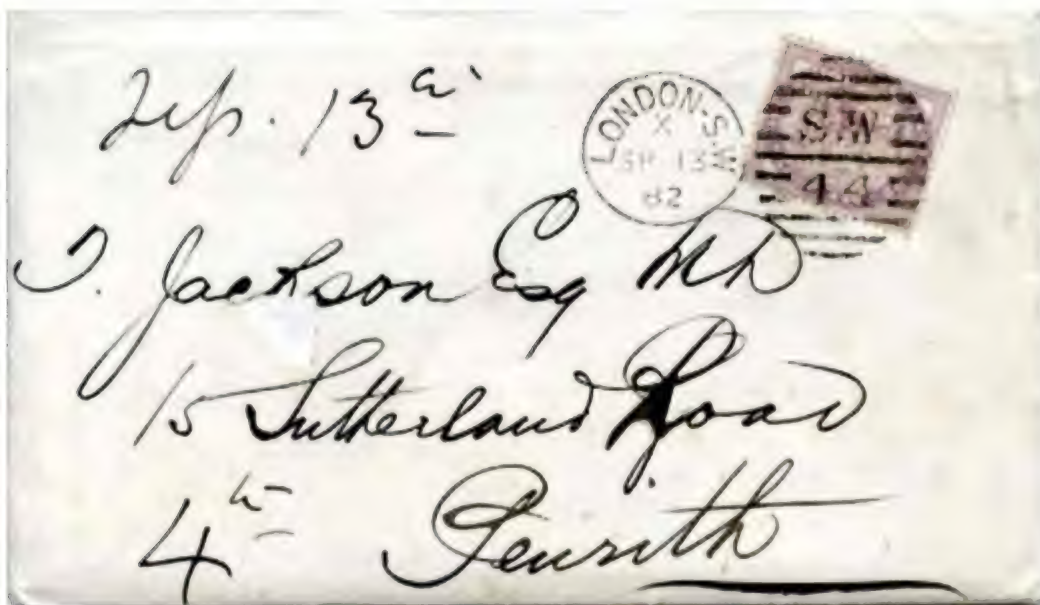 Sep. 13th
LONDON-S.W
X
SP 13
82
S.W
44
J. Jackson Esq MD
15 Sutherland Road
4th Penrith